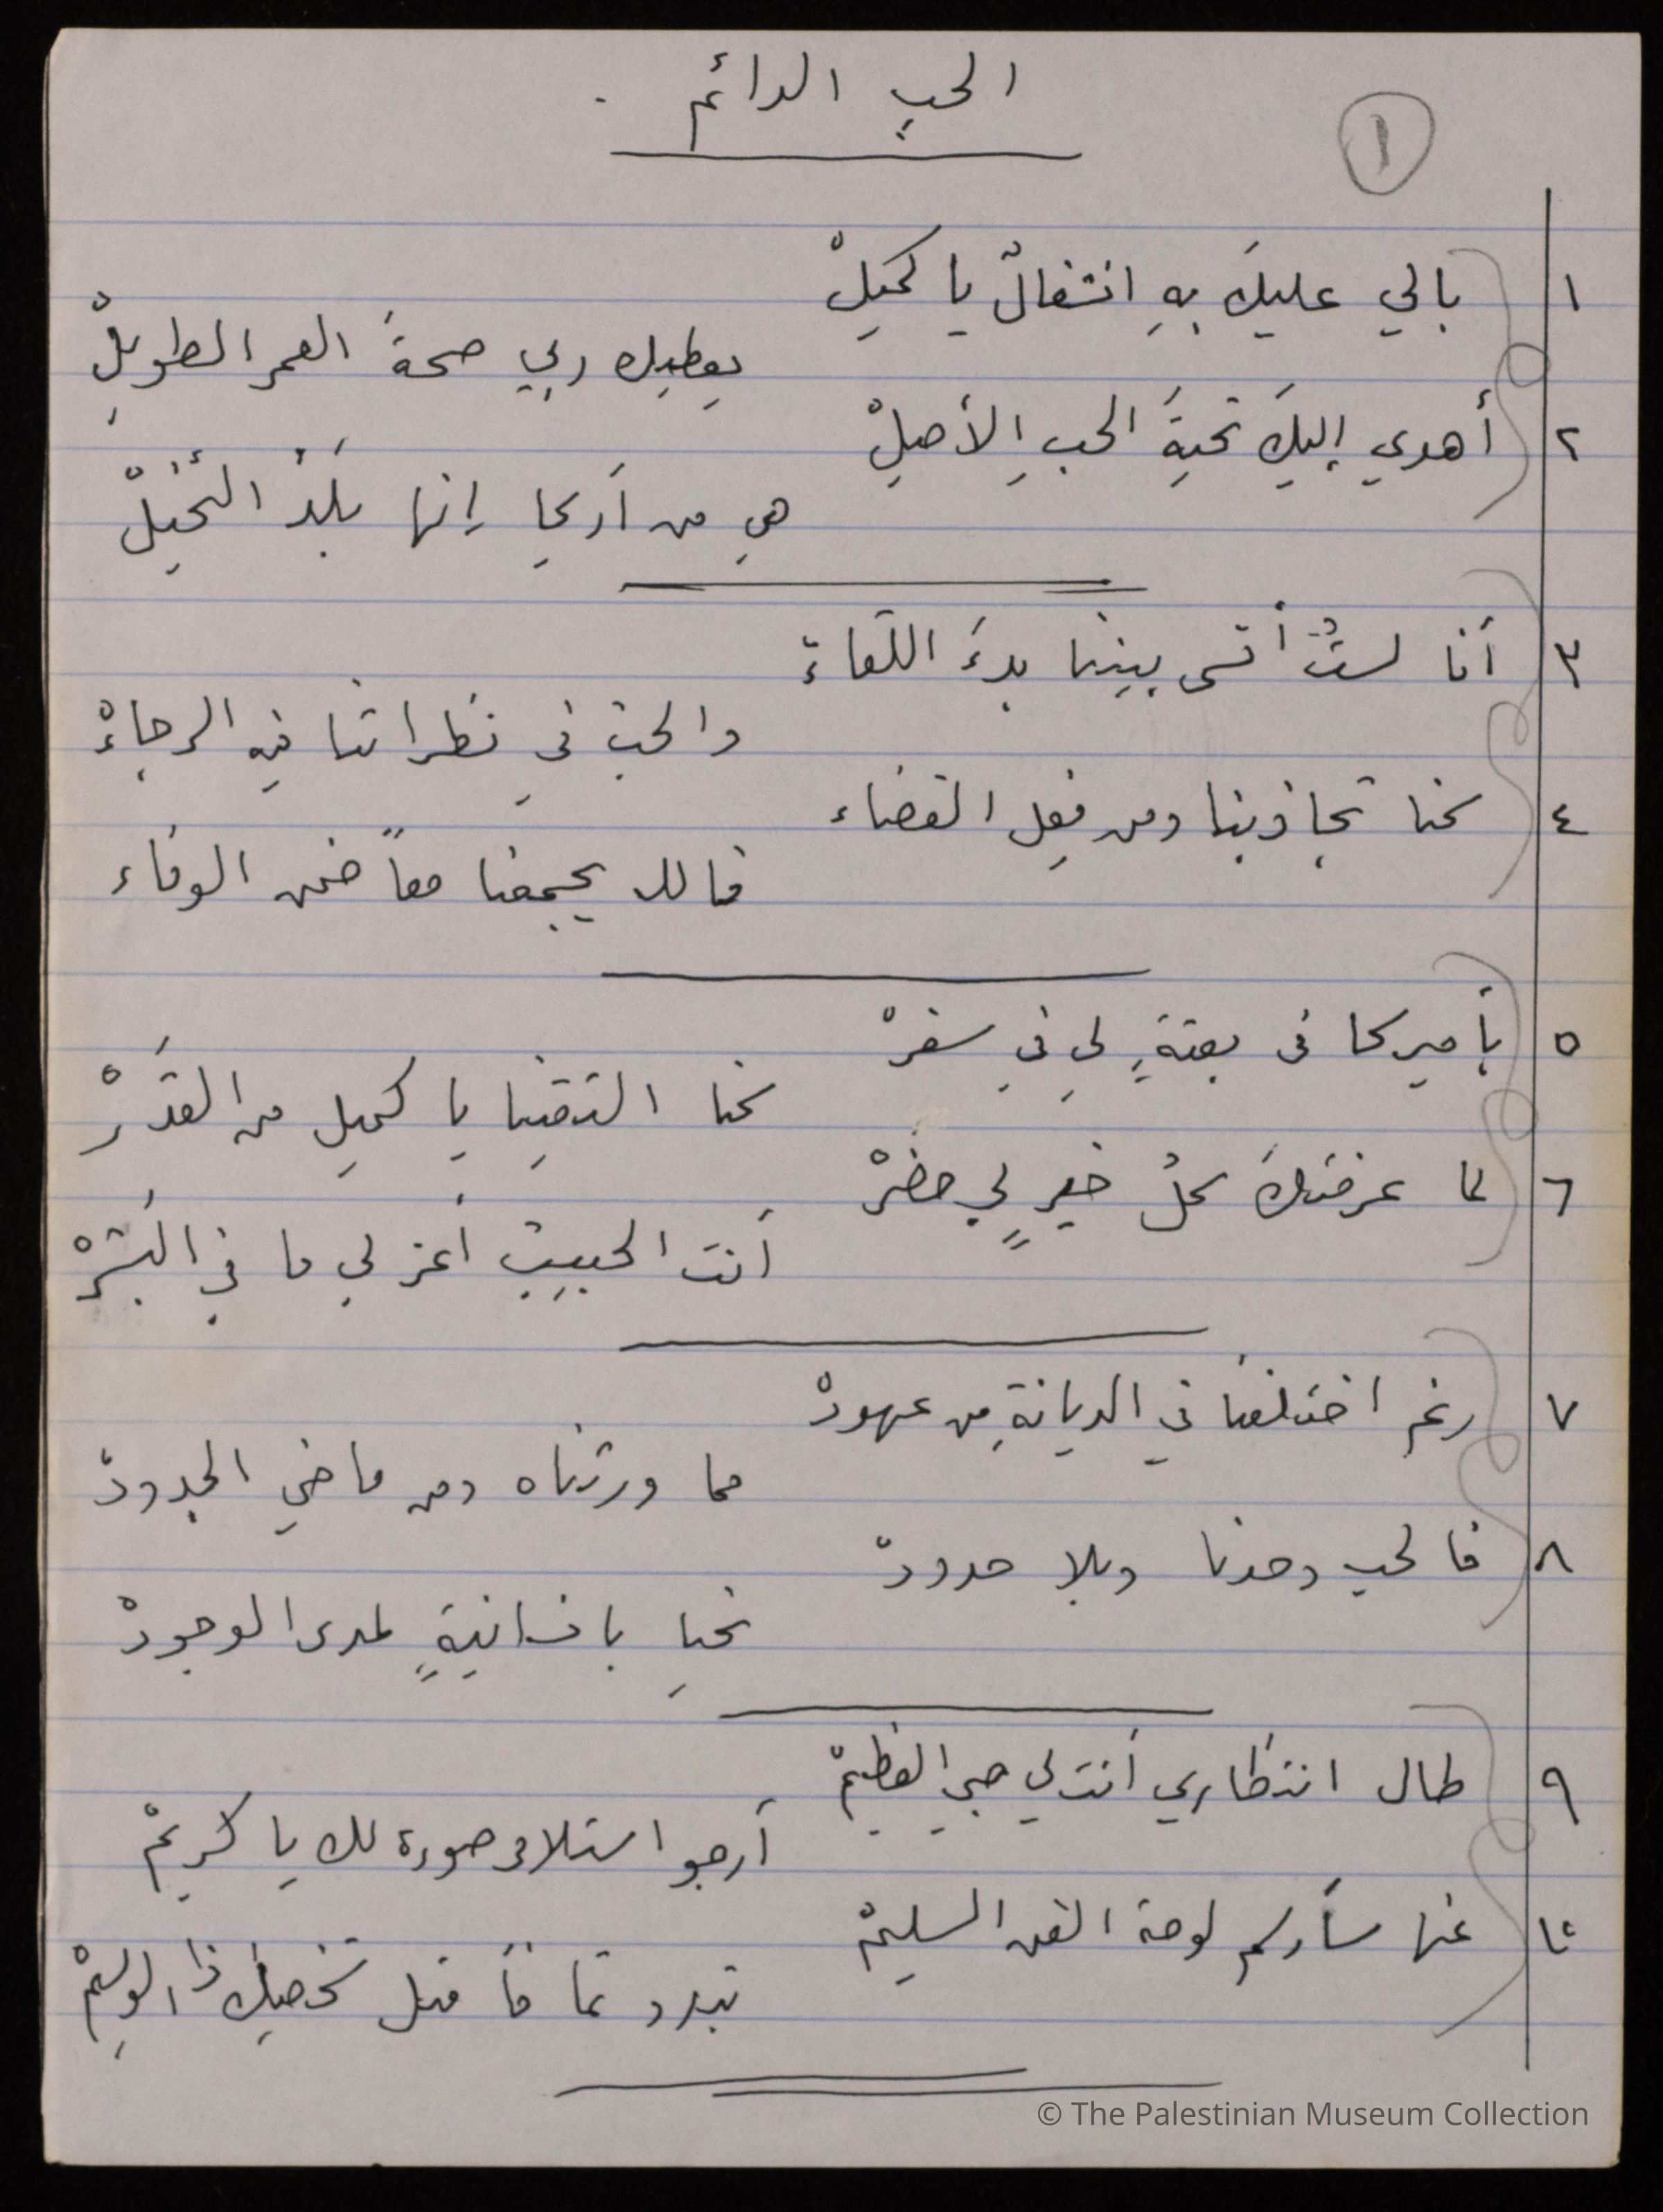 الحب الدائم .
١
١ بالي عليكَ بهِ انشغالٌ يا كميلْ
يعطيك ربي صحةَ العمر الطويلْ
٢ أهدي إليكَ تحيةَ الحبِ الأصيلْ
هي من أريحا إنها بَلَدُ النَّخيلْ
٣ أنا لستُ أنسى بيننا بدءَ اللقاءْ
والحبُ في نظراتنا فيه الرجاءْ
٤ نحنا تجاذبنا ومن فعل القضاء
فالله يجمعنا معاً ضمن الوفاء
٥ بأميركا في بعثةٍ لي في سفرْ
نحنا التقينا يا كميل من القَدَرْ
٦ لما عرفتكَ كلُ خيرٍ لي حضرْ
أنت الحبيبُ أعز لي ما في البَشَرْ
٧ رغم اختلفنا في الديانةِ من عهودْ
مما ورثناه ومن ماضي الجدودْ
٨ فالحب وحدنا وبلا حدودْ
نحيا بانسانيةٍ لمدى الوجودْ
٩ طال انتظاري أنت لي حبي العظيمْ
أرجو استلامي صورة لك يا كريمْ
١٠ عنها سأرسم لوحة الفن السليمْ
تبدو تماماً مثل شخصِكَ ذا الوسيمْ
© The Palestinian Museum Collection